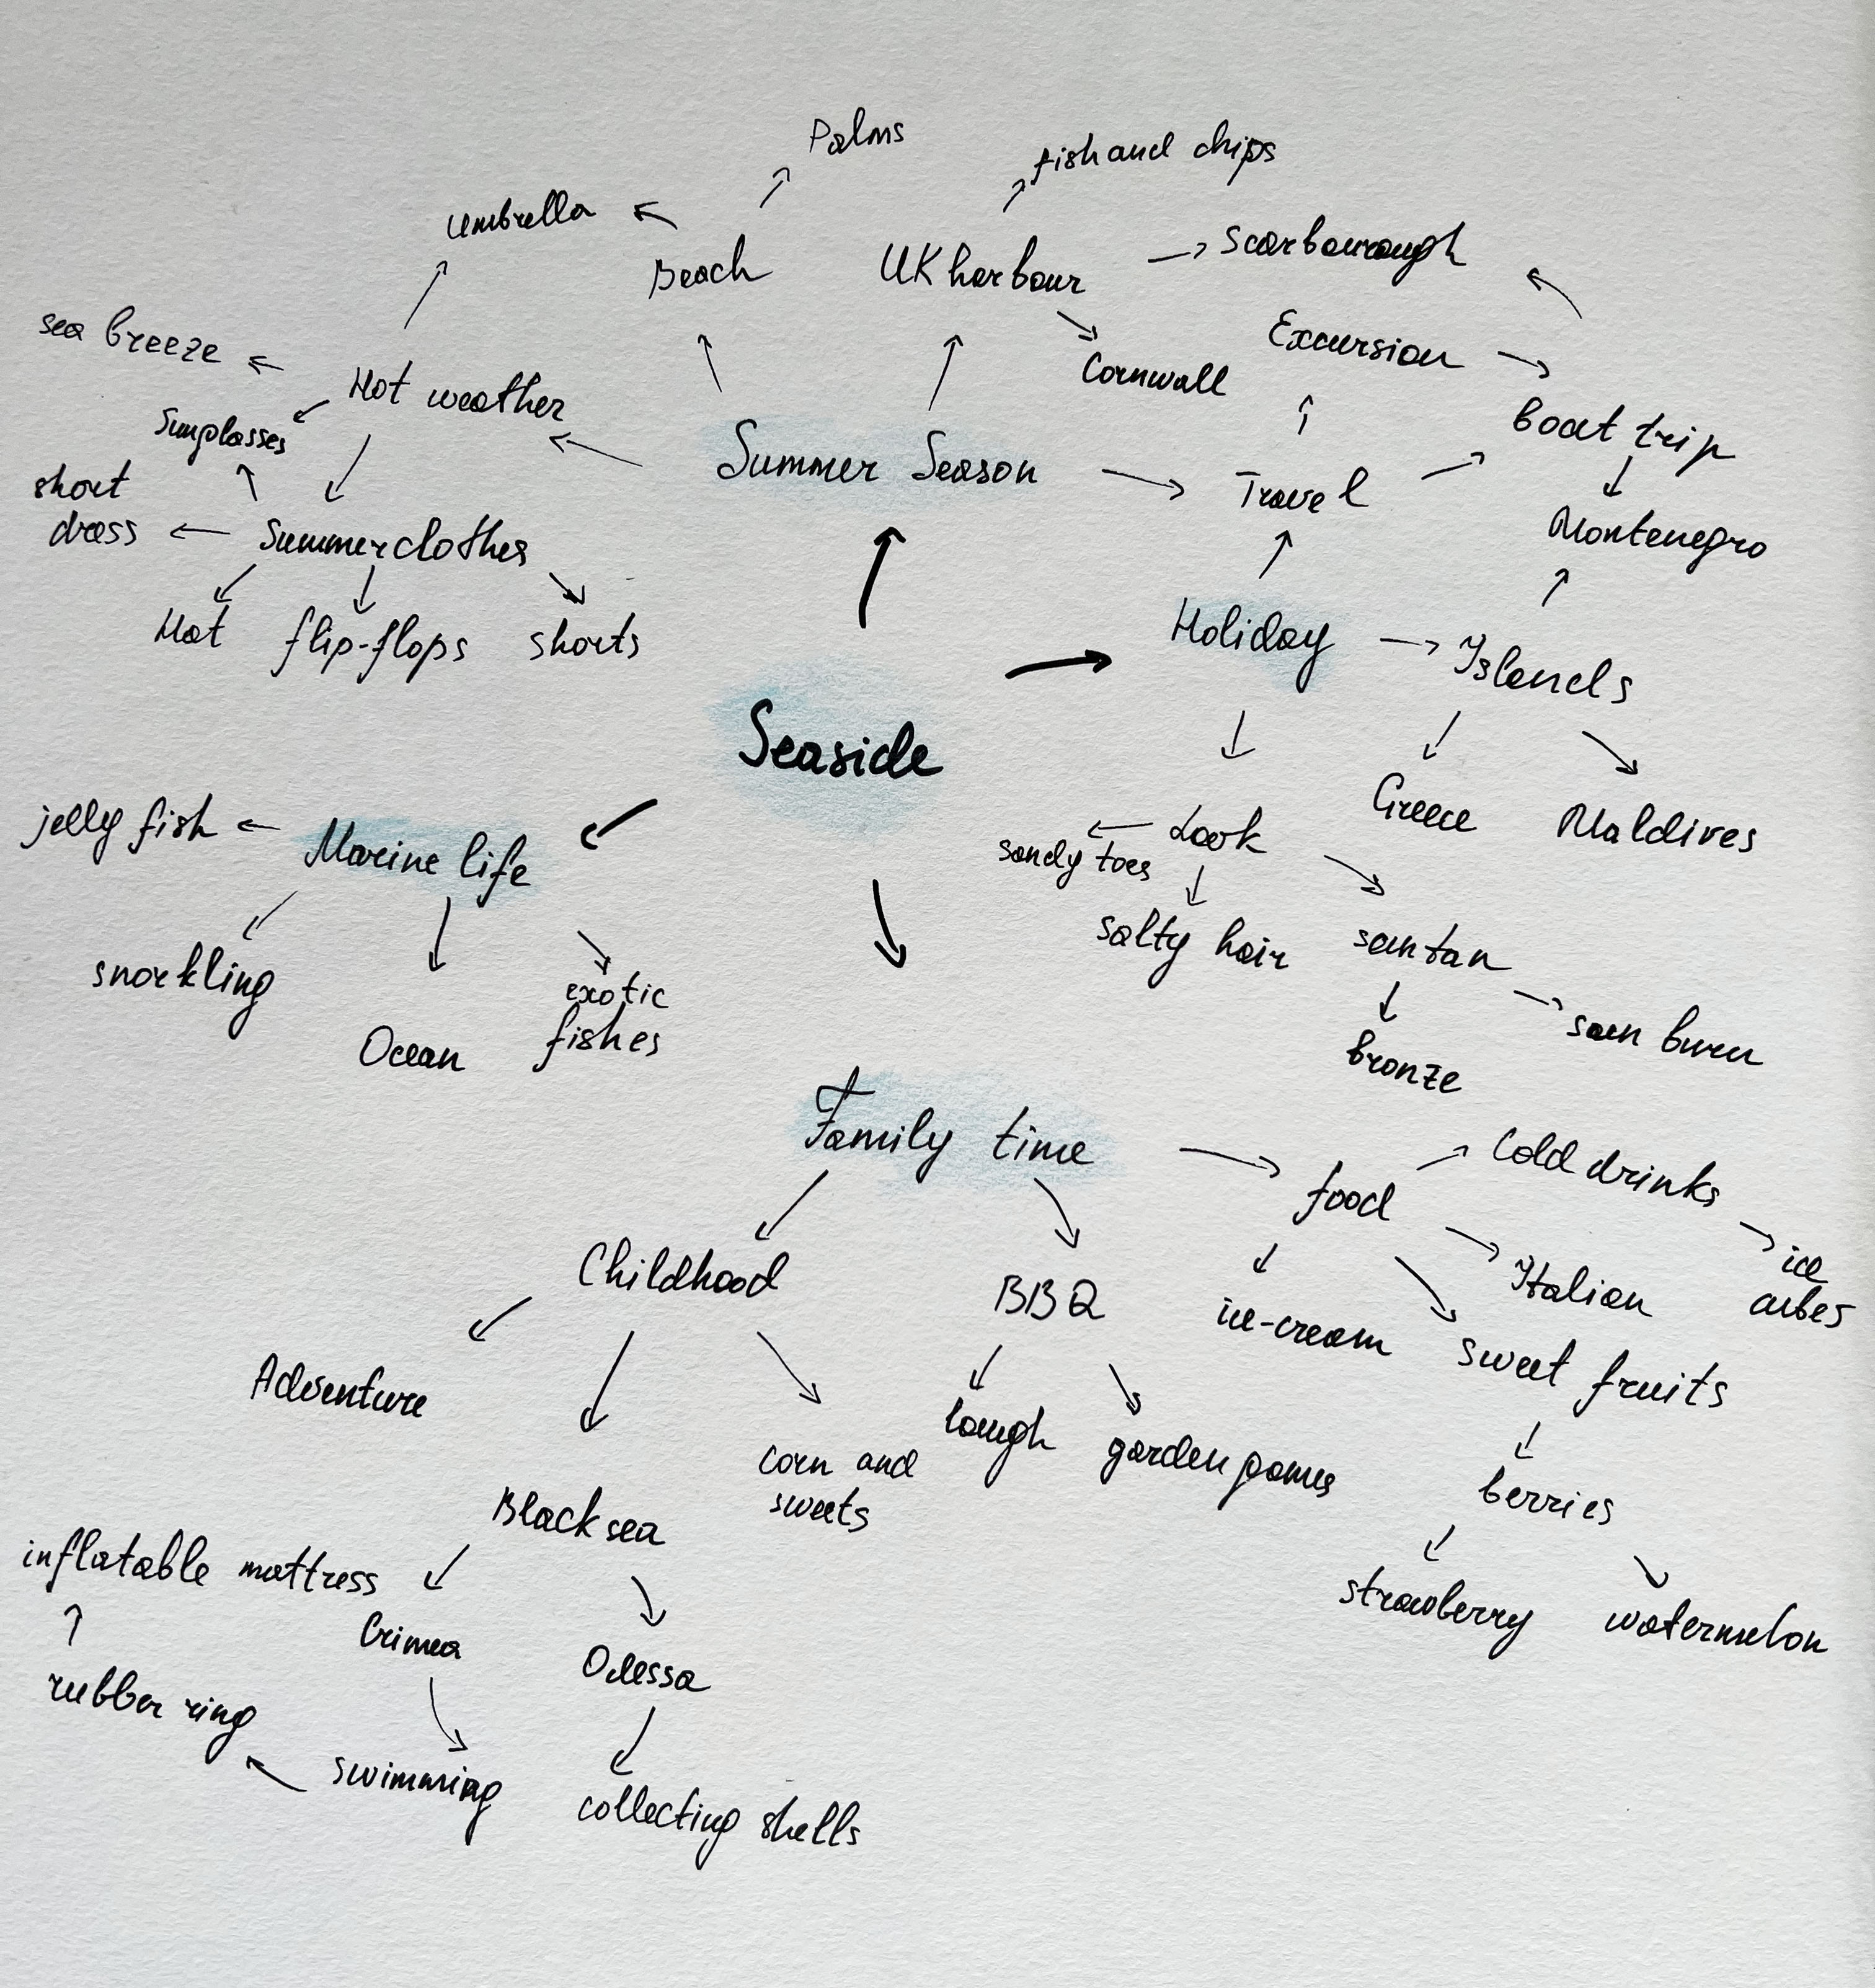 Palms
fish and chips
umbrella
Beach
UK harbour
Scarbourough
sea breeze
Hot weather
Excursion
Cornwall
Sunglasses
Boat trip
Summer Season
short
dress
Travel
Summer clothes
Montenegro
Hat
flip-flops
shorts
Holiday
Islands
Seaside
jelly fish
Marine life
Look
Greece
Maldives
sandy toes
salty hair
suntan
snorkling
exotic
fishes
Ocean
sun burn
bronze
Family time
Cold drinks
food
ice
cubes
Childhood
BBQ
ice-cream
Italian
sweet fruits
Adventure
laugh
garden games
corn and
sweets
Black sea
berries
inflatable mattress
Crimea
Odessa
strawberry
watermelon
rubber ring
swimming
collecting shells